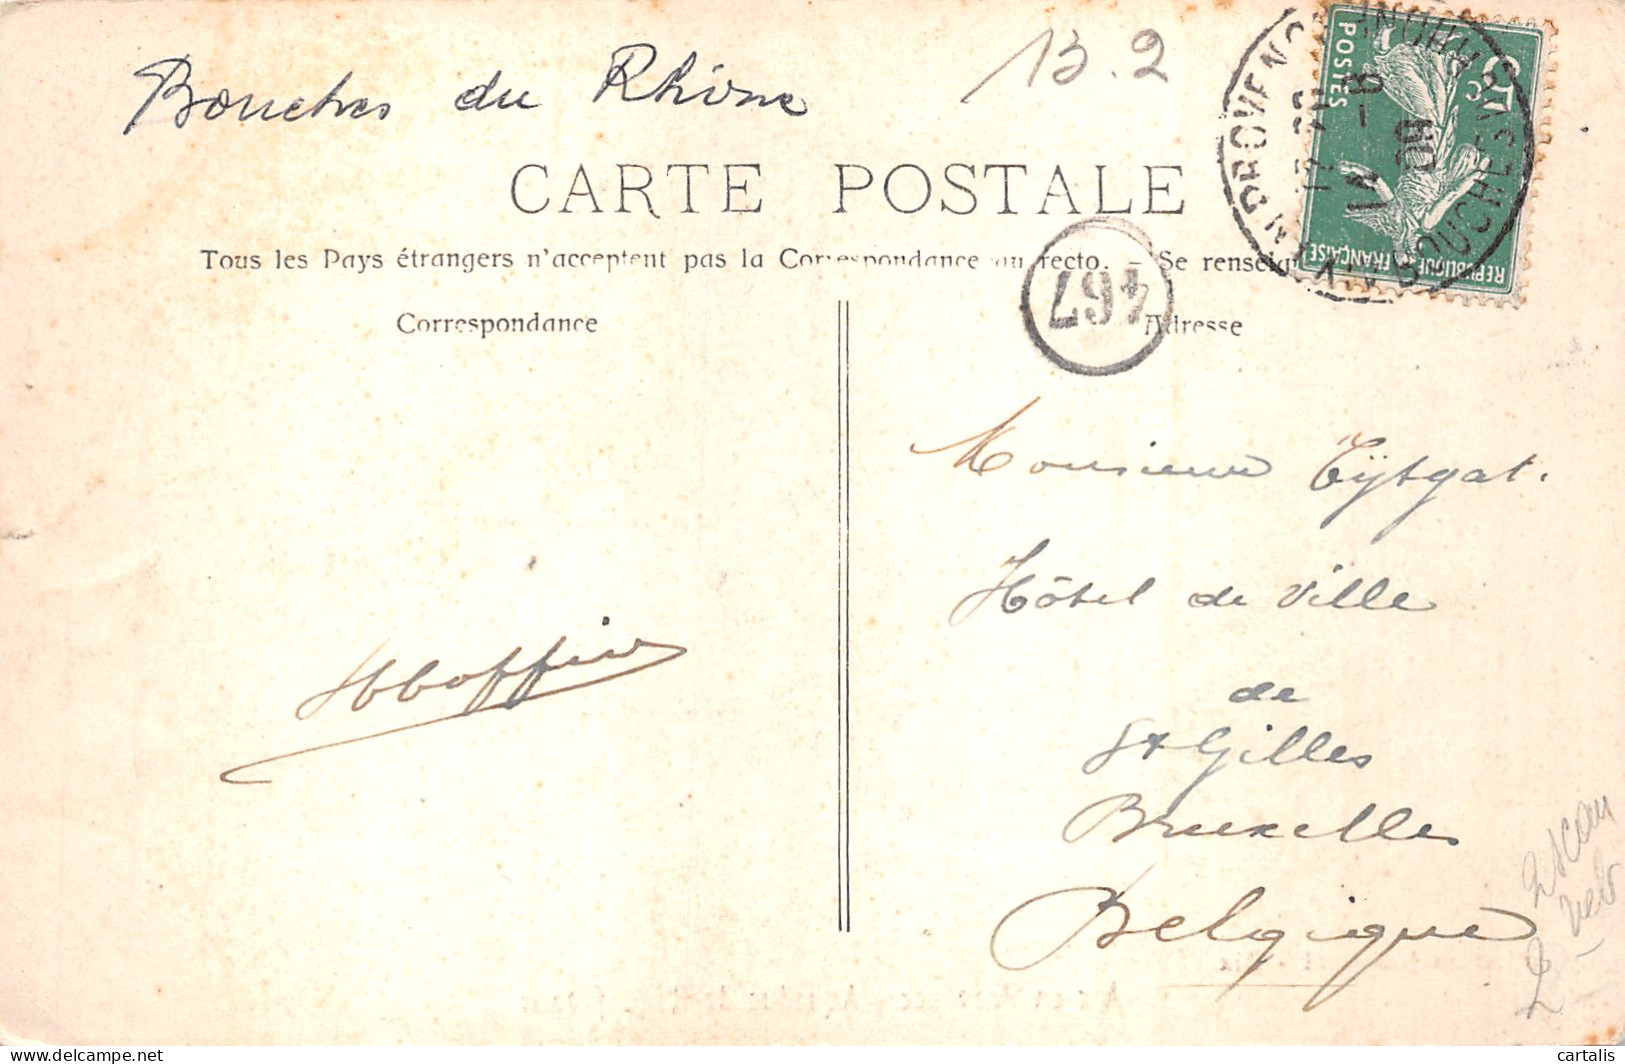 Bouches du Rhône
13.2
CARTE POSTALE
Tous les Pays étrangers n'acceptent pas la Correspondance au recto. – Se renseig
Correspondance
Adresse
467
5c
POSTES
REPUBLIQUE FRANÇAISE
EN PROVENCE
BOUCHES DU RHONE
14 -8
09
Monsieur Tytgat.
Hôtel de Ville
de
St Gilles
Bruxelles
Belgique
2
cartalis